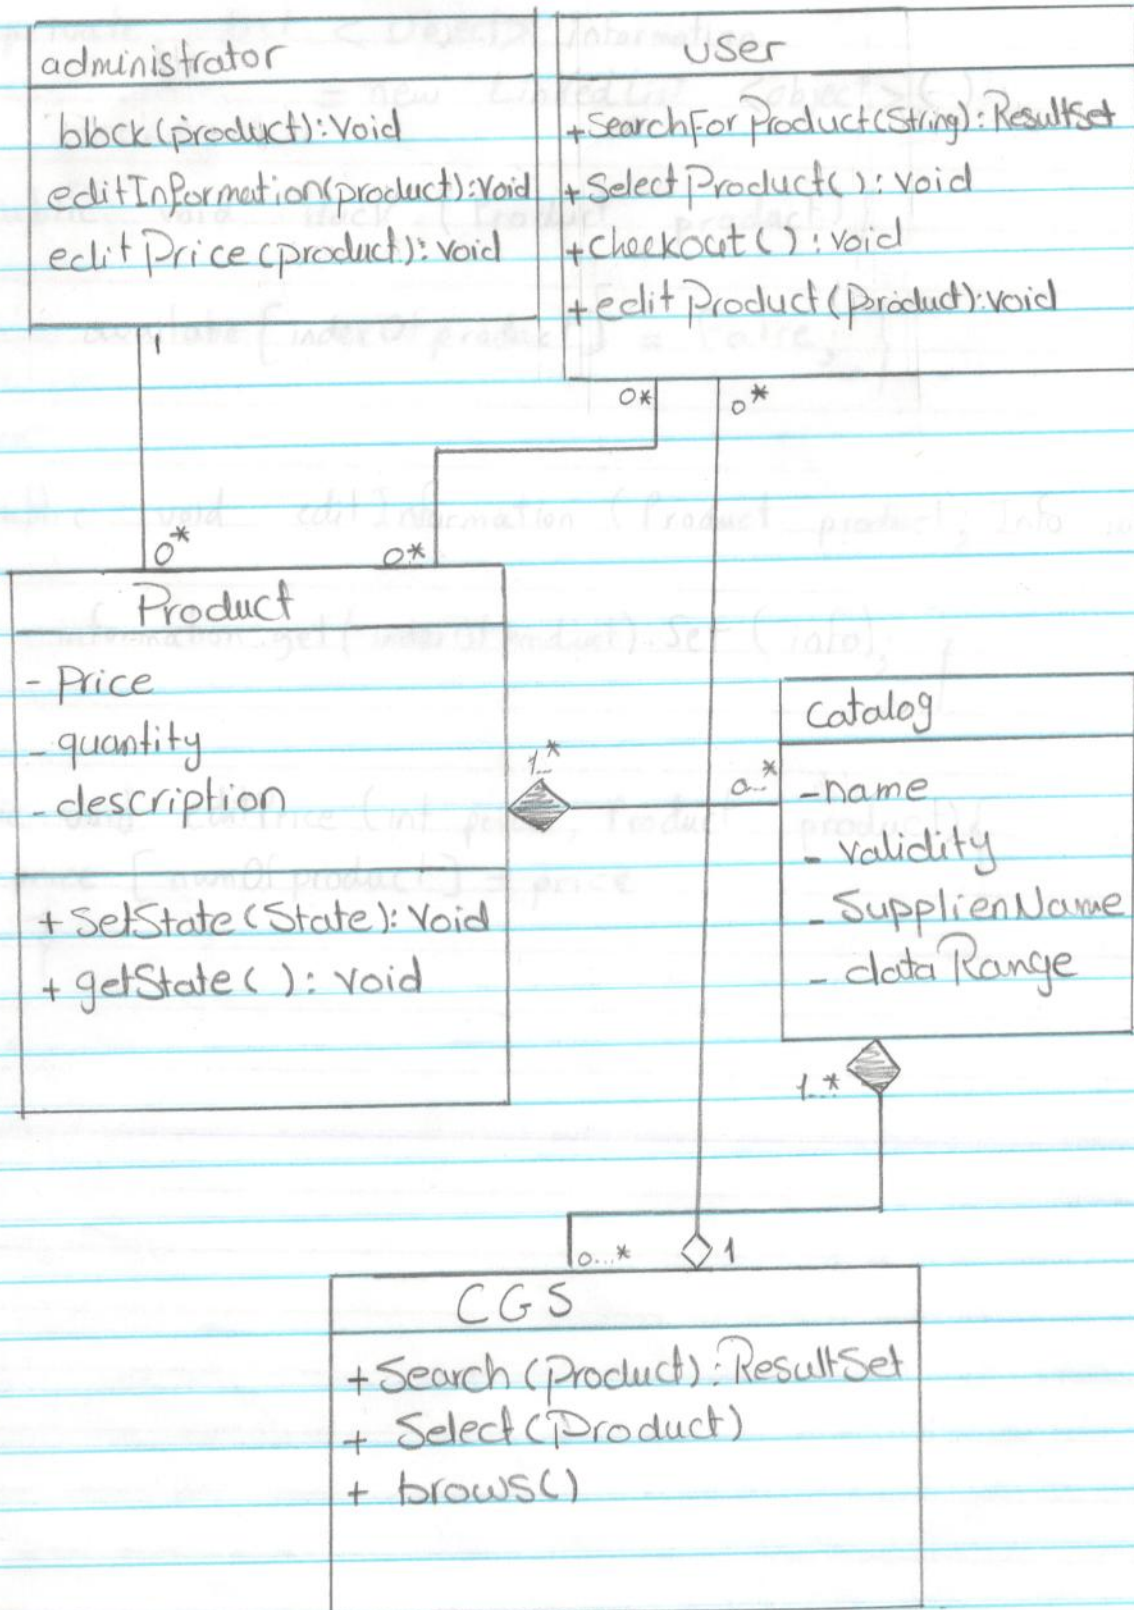 administrator
block(product):Void
editInformation(product):Void
editPrice(product):Void
1
user
+SearchForProduct(String):ResultSet
+SelectProduct():Void
+checkout():void
+editProduct(Product):void
0*
0*
0*
0*
Product
- Price
- quantity
- description
+ SetState(State):Void
+ getState():Void
1..*
0..*
Catalog
-name
- Validity
- SupplienName
- dataRange
1..*
0...*
1
CGS
+Search(Product):ResultSet
+ Select(Product)
+ brows()